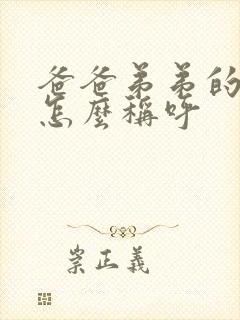 爸爸弟弟的
怎麼稱呼
崇正義